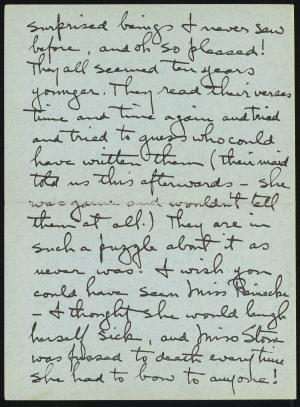 surprised beings I never saw
before, and oh so pleased!
They all seemed ten years
younger. They read their verses
time and time again and tried
and tried to guess who could
have written them (their maid
told us this afterwards - she
was game and wouldn't tell
them at all.) They are in
such a puzzle about it as
never was! I wish you
could have seen Miss Reinecke
- I thought she would laugh
herself sick, and Miss Stone
was fussed to death everytime
she had to bow to anyone!